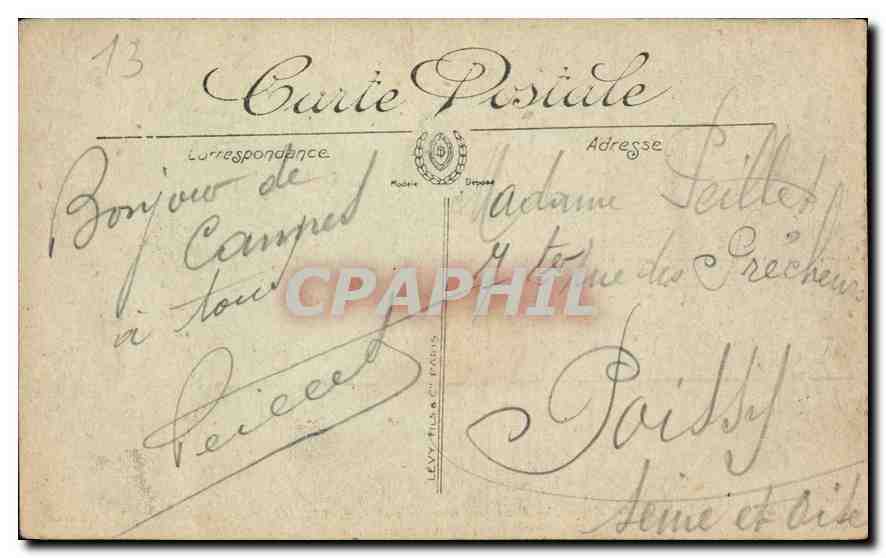 13
Carte Postale
Correspondance
Adresse
Modèle Déposé
Bonjour de
à tous
Peillet
LÉVY FILS & Cie PARIS
Madame Peillet
7 ter rue des Prêcheurs
Poissy
Seine et Oise
CPAPHIL